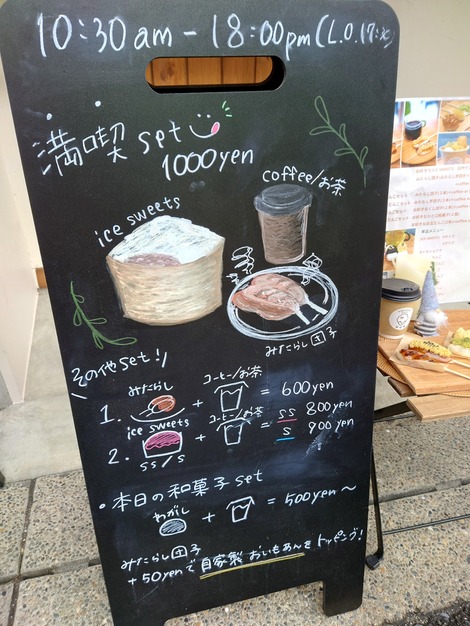 10:30am - 18:00pm (L.O.17:30)
満喫 set
1000yen
coffee/お茶
ice sweets
みたらし団子
その他set!
みたらし
コーヒー/お茶
1. + = 600yen
ice sweets
コーヒー/お茶
2. + = ss 800yen
s 900yen
ss/s
・本日の和菓子set
わがし
+ = 500yen~
みたらし団子
+50yenで自家製おいもあんをトッピング!